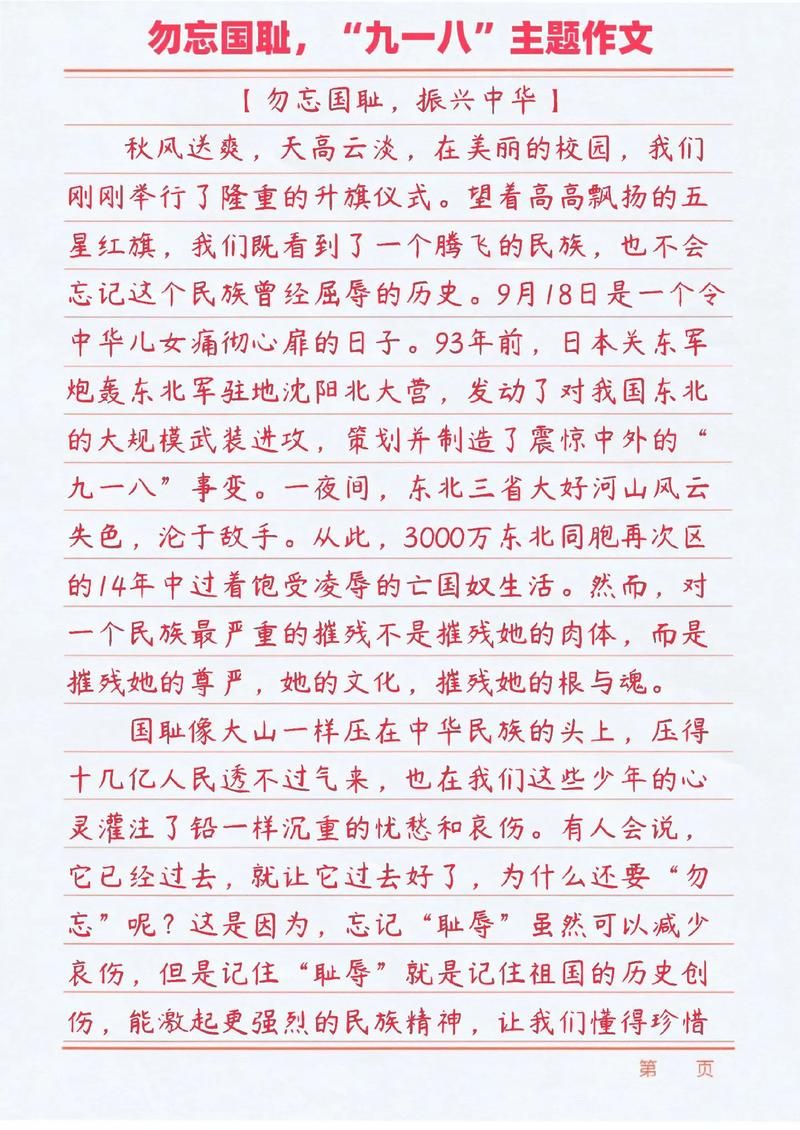 勿忘国耻，“九一八”主题作文
【勿忘国耻，振兴中华】
秋风送爽，天高云淡，在美丽的校园，我们
刚刚举行了隆重的升旗仪式。望着高高飘扬的五
星红旗，我们既看到了一个腾飞的民族，也不会
忘记这个民族曾经屈辱的历史。9月18日是一个令
中华儿女痛彻心扉的日子。93年前，日本关东军
炮轰东北军驻地沈阳北大营，发动了对我国东北
的大规模武装进攻，策划并制造了震惊中外的“
九一八”事变。一夜间，东北三省大好河山风云
失色，沦于敌手。从此，3000万东北同胞再次区
的14年中过着饱受凌辱的亡国奴生活。然而，对
一个民族最严重的摧残不是摧残她的肉体，而是
摧残她的尊严，她的文化，摧残她的根与魂。
国耻像大山一样压在中华民族的头上，压得
十几亿人民透不过气来，也在我们这些少年的心
灵灌注了铅一样沉重的忧愁和哀伤。有人会说，
它已经过去，就让它过去好了，为什么还要“勿
忘”呢？这是因为，忘记“耻辱”虽然可以减少
哀伤，但是记住“耻辱”就是记住祖国的历史创
伤，能激起更强烈的民族精神，让我们懂得珍惜
第 页